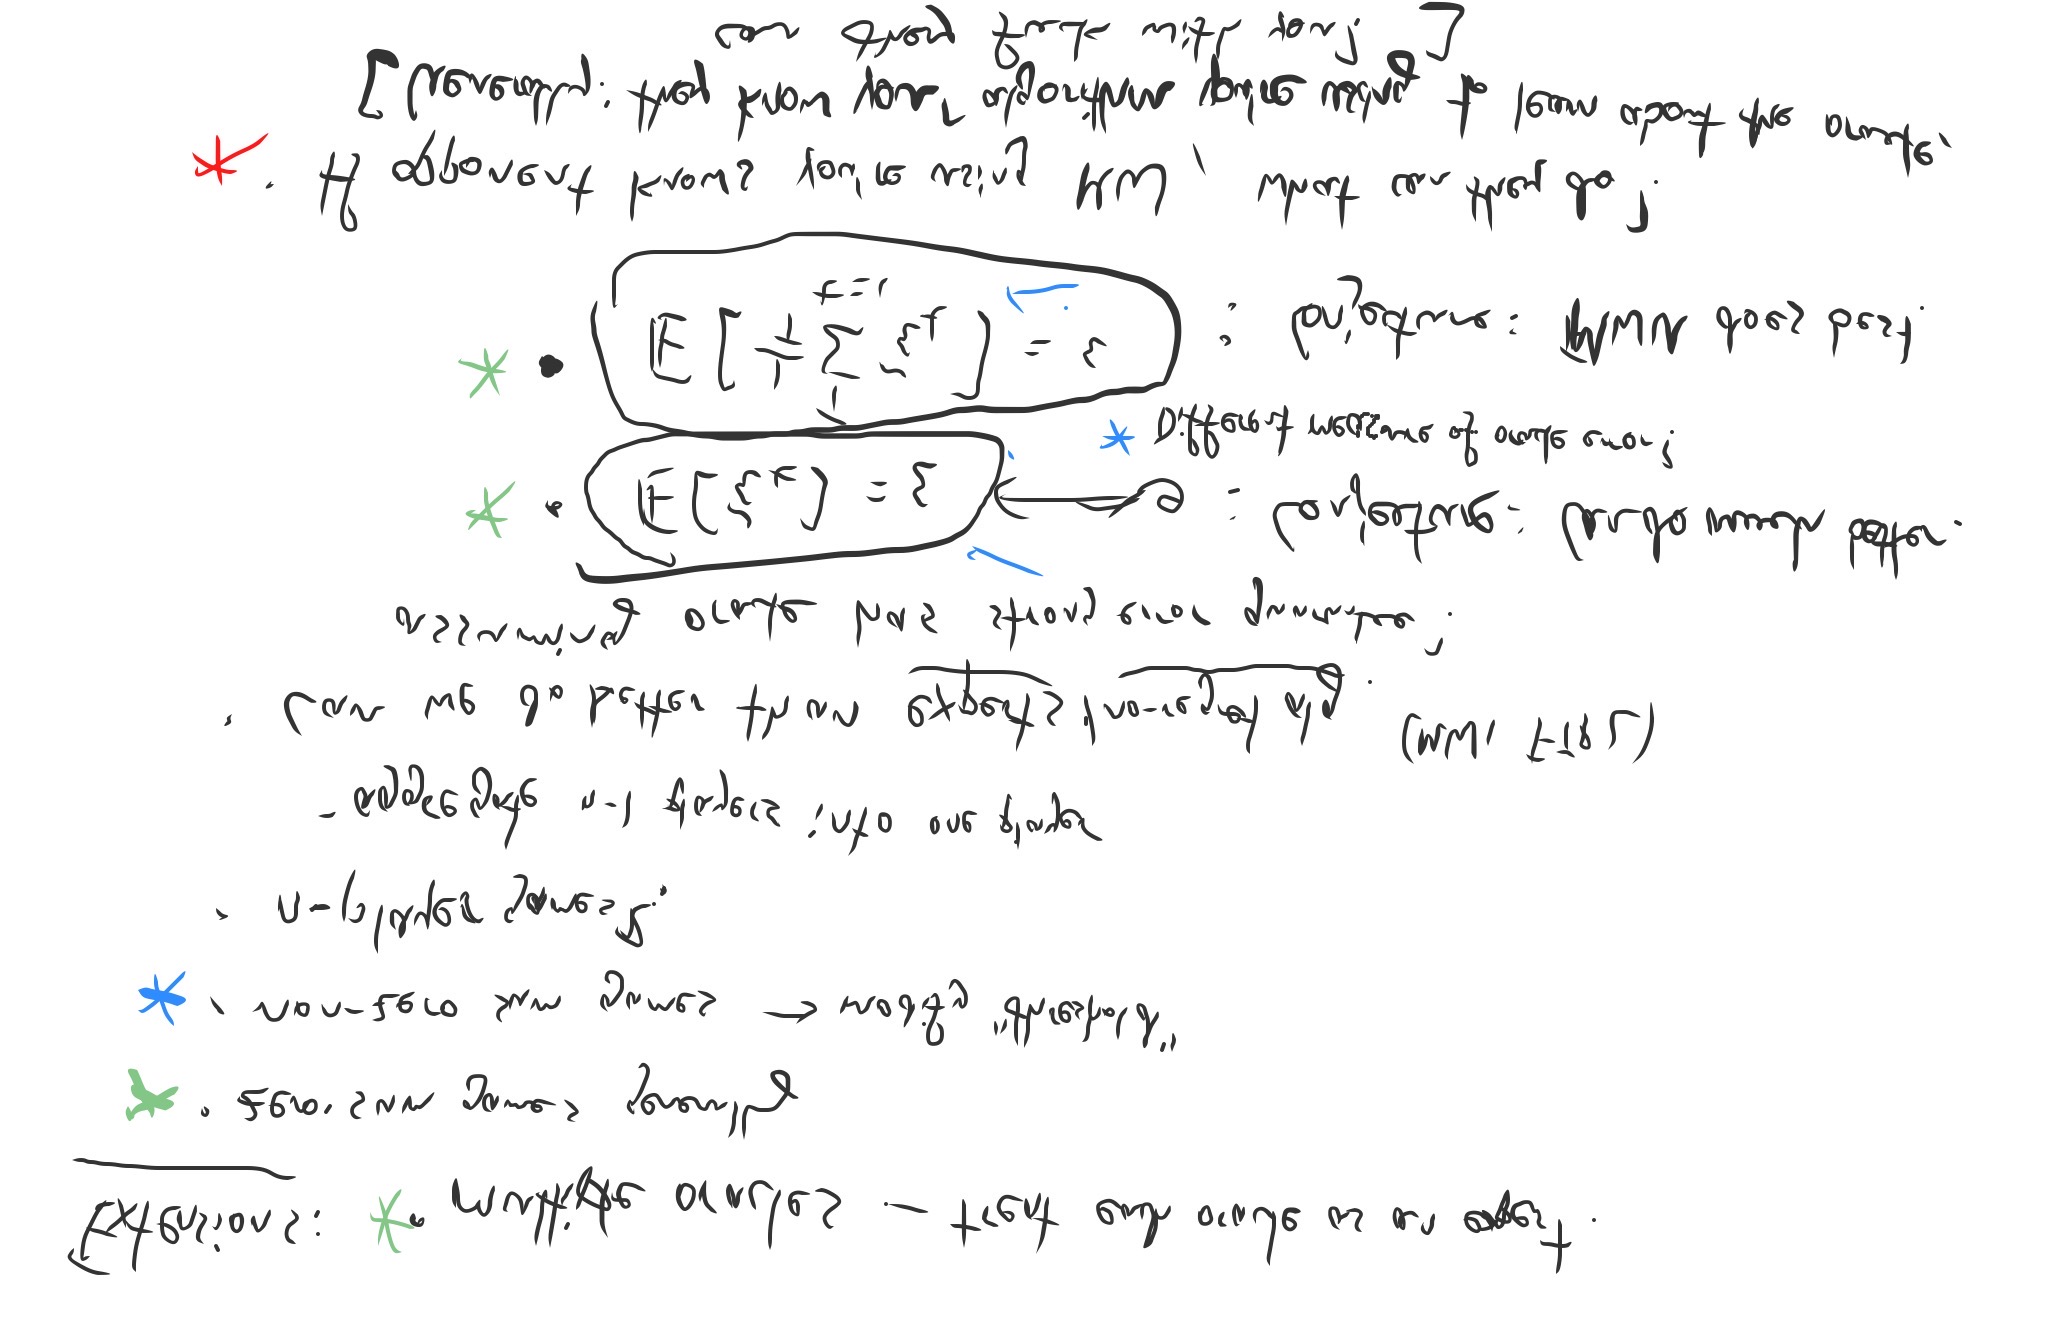 Extensions: * · multiple oracles – treat each oracle as an expert.
* · zero-sum games generally
* · non-zero sum games → modify "threshold"
· n-player games?.
- aggregate n-1 players into one player
· Can we do better than experts / no-regret alg. (MWU FTPL)
assuming oracle has strong error guarantee?
* · E[ε̃_t] = ε ⟷ : Conjecture: Can do much better.
* Different measure of oracle error?
* • E[1/T Σ_{t=1}^T ε̃_t] = ε : Conjecture: MWU does best.
* · If opponent knows you're using MW, what can they do?
[Generally: they know your algorithm you're using to learn about the oracle,
can they fuck with you?]